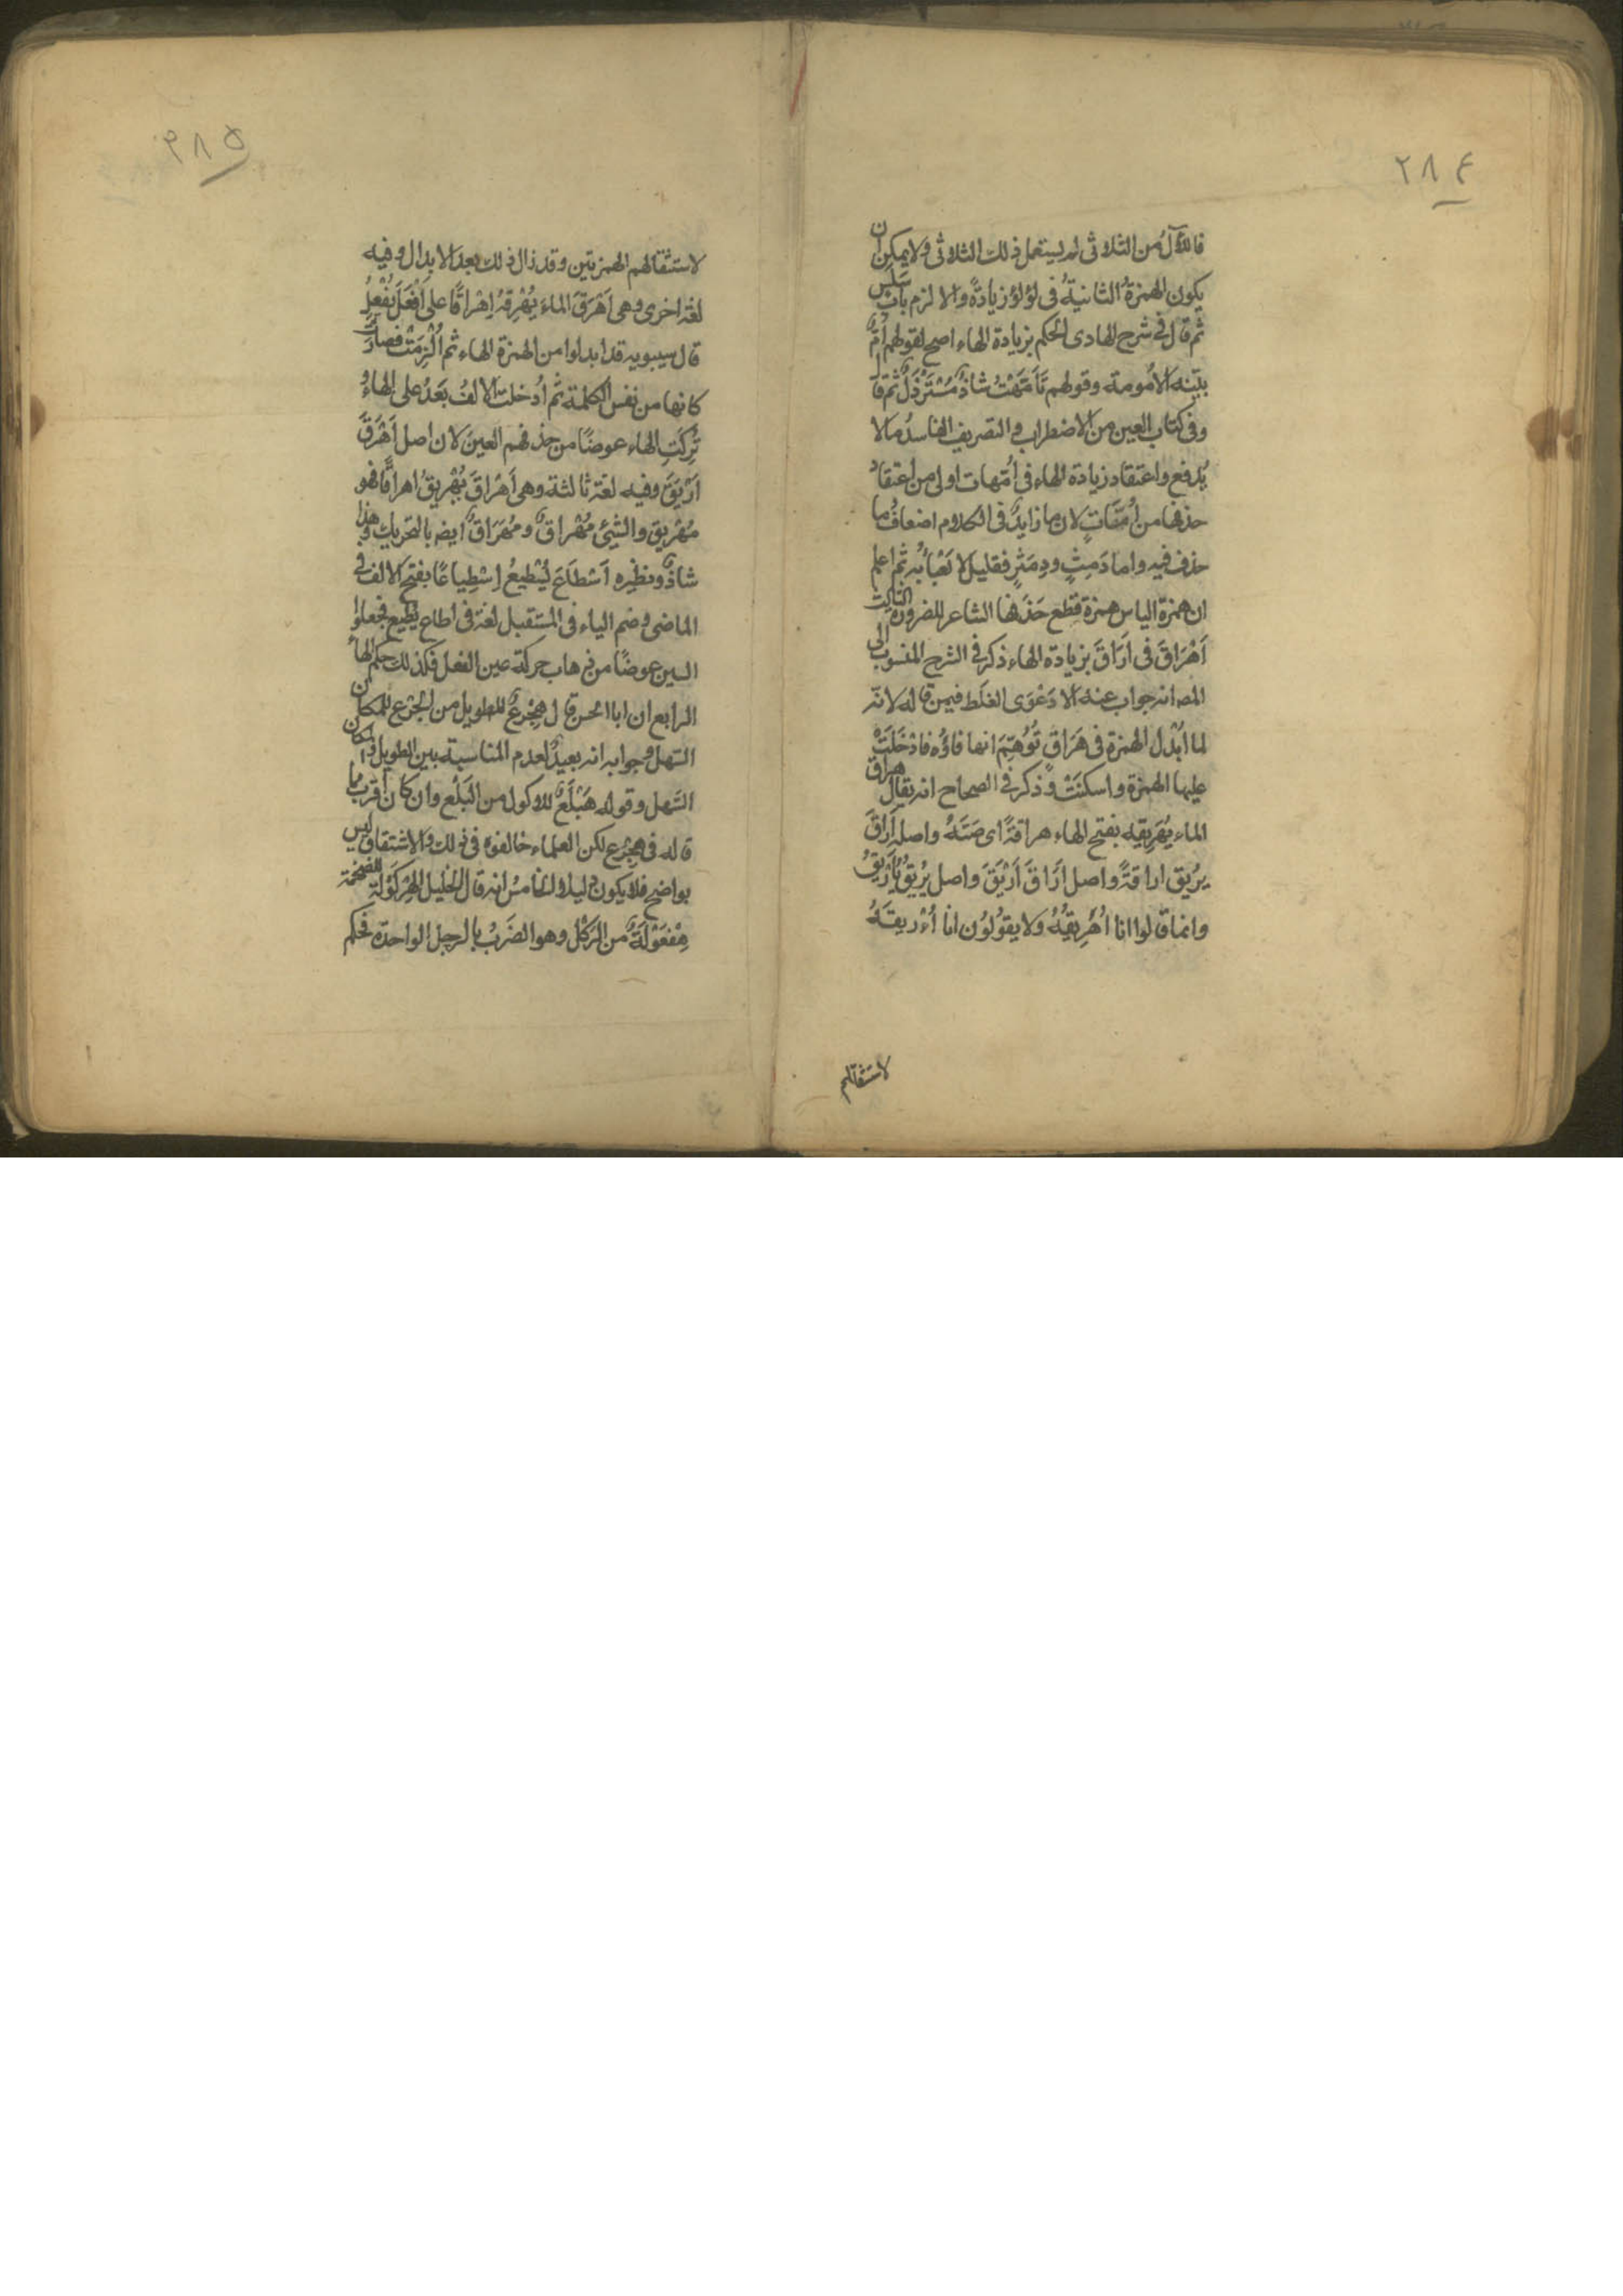 ٢٨٤
فاللآل من الثلاثى لم يستعمل ذلك الثلاثى ولا يمكن ان
يكون الهمزةُ الثانيةُ فى لؤلؤ زيادةً والا لزم باب سَلَسٍ
ثم قال فى شرح الهادى الحكم بزيادة الهاء اصح لقولهم اُمٌّ
بيّنه الاُمومة وقولهم تَأَمَّهَتْ شاذٌّ مُسْتَرْذَلٌ ثم قال
وفى كتاب العين من الاضطراب والتصريف الفاسد ما لا
يُدفع واعتقاد زيادة الهاء فى اُمّهات اولى من اعتقاد
حذفها من اُمّات لان ما زايدٌ فى الكلام اضعافُ ما
حذف فيه واما دَمِثٍ ودِمَثْرٍ فقليل لا يَعْبَأُ به ثم اعلم
ان همزة الياس همزة قطع حَذَفها الشاعر للضرورة الثالث
اَهْرَاقَ فى اَرَاقَ بزيادة الهاء ذكر فى الشرح المنسوب الى
المص انه جواب عنه الا دَعْوَى الغَلَط فيمن قاله لانّه
لما اُبْدل الهمزة فى هَرَاقَ تُوُهِّمَ انها فاؤه فادْخَلَتْ
عليها الهمزة واسكنَتْ وذكر فى الصحاح انه يقال هراق
الماء يُهَرِيقه بفتح الهاء هراقةً اى صَبَّهُ واصله اَرَاقَ
يرُيق اراقةً واصل اَرَاقَ اَرْيَقَ واصل يُرِيقُ يُأَرْيِقُ
وانما قالوا انا اُهَرِيقُهُ ولا يقولون انا اُءَرِيقَهُ
لاستثقالهم
٢٨٥
لاستثقالهم الهمزتين وقد زال ذلك بعد الابدال وفيه
لغة اخرى وهى اَهْرَقَ الماءَ يُهْرِقُه اِهْرَاقًا على اَفْعَلَ يُفْعِلُ
قال سيبويه قد ابدلوا من الهمزة الهاء ثم اُلْزِمَتْ فصارَتْ
كانها من نفس الكلمة ثم اُدخلت الالفُ بَعْدُ على الهاءِ و
تُرِكَتِ الهاء عوضًا من حذفهم العين لان اصل اَهْرَقَ
اَرْيَقَ وفيه لغة ثالثة وهى اَهْرَاقَ يُهْرِيقُ اهراقًا فهو
مُهْرِيق والشئ مُهْرَاقٌ ومُهَرَاقٌ ايضه بالتحريك وهذا
شاذٌّ ونظيره اَسْطَاعَ يُسْطِيعُ اِسْطِيَاعًا بفتح الالف فى
الماضى وضم الياء فى المستقبل لغة فى اطاع يُطيع فجعلوا
السين عوضًا من ذهاب حركة عين الفعل فكذلك حكم الهاء
الرابع ان ابا الحسن قال هِجْرَعٌ للطويل من الجَرَعِ للمكان
السّهل وجوابه انه بعيدٌ لعدم المناسبة بين الطويل والمكان
السَّهل وقوله هَبْلَعٌ للاكول من البَلْع وان كان اقرب ما
قاله فى هِجْرع لكن العلماء خالفوه فى ذلك والاشتقاق ليس
بواضح فلا يكون دليلا والخامسُ انه قال الخليل الهِرْكَوْلة للضخمة
هِفْعَوْلَةٌ من الرَّكْل وهو الضَرْبُ بالرجل الواحدة فحكم